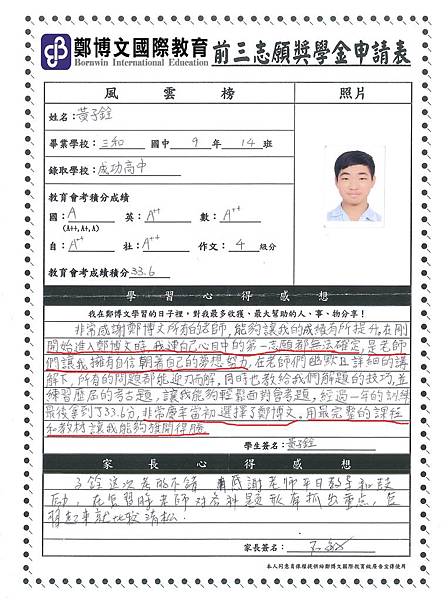 鄭博文國際教育 前三志願獎學金申請表
Bornwin International Education
風雲榜 照片
姓名：黃子銓
畢業學校：三和 國中 9 年 14 班
錄取學校：成功高中
教育會考積分成績
國：A 英：A++ 數：A++
(A++, A+, A)
自：A++ 社：A++ 作文：4 級分
教育會考成績積分33.6
學習心得感想
我在鄭博文學習的日子裡，對我最多收獲、最大幫助的人、事、物分享！
非常感謝鄭博文所有的老師，能夠讓我的成績有所提升。在剛
開始進入鄭博文時，我連自己心目中的第一志願都無法確定，是老師
們讓我擁有自信朝著自己的夢想努力，在老師們幽默且詳細的講
解下，所有的問題都能迎刃而解，同時也教給我們解題的技巧，並
練習歷屆的考古題，讓我能夠輕鬆面對會考題，經過一年的訓練
最後拿到了33.6分，非常慶幸當初選擇了鄭博文。用最完整的課程
和教材讓我能夠旗開得勝。
學生簽名：黃子銓
家長心得感想
子銓這次考的不錯 感謝老師平日教導和鼓
勵，在複習時老師對各科題形有抓出重點，複
習起來就比較清松．
家長簽名：
本人同意肖像權提供給鄭博文國際教育做廣告宣傳使用